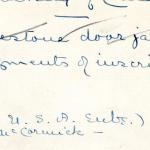 of C
estone door ja
gments of inscri
U. S. A. Eubt.)
McCormick —